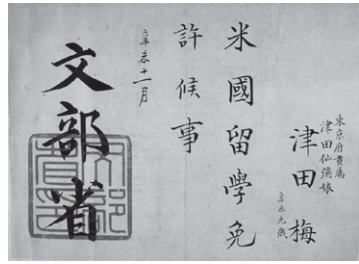 東京府貫属
津田仙弥娘
津田梅
辛未九歳
米國留學免
許候事
辛未十一月
文部省
文部
省印